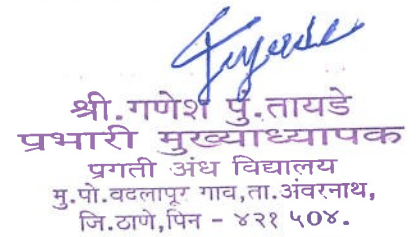 श्री.गणेश पु.तायडे
प्रभारी मुख्याध्यापक
प्रगती अंध विद्यालय
मु.पो.बदलापूर गाव,ता.अंबरनाथ,
जि.ठाणे,पिन - ४२१ ५०४.